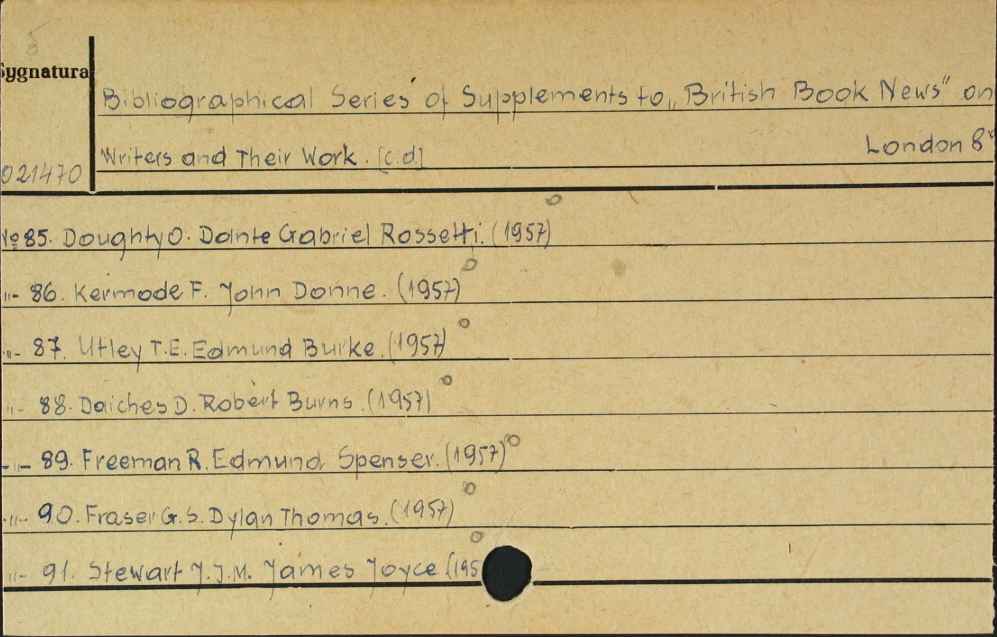 Sygnatura
Bibliographical Series of Supplements to „British Book News" on
Writers and Their Work. [c.d] London 8°
021470
№ 85. Doughty O. Dante Gabriel Rossetti. (1957)
-"- 86. Kermode F. John Donne. (1957)
-"- 87. Utley T.E. Edmund Burke. (1957)
-"- 88. Daiches D. Robert Burns. (1957)
-"- 89. Freeman R. Edmund Spenser. (1957)
-"- 90. Fraser G.S. Dylan Thomas. (1957)
-"- 91. Stewart J.J.M. James Joyce (195